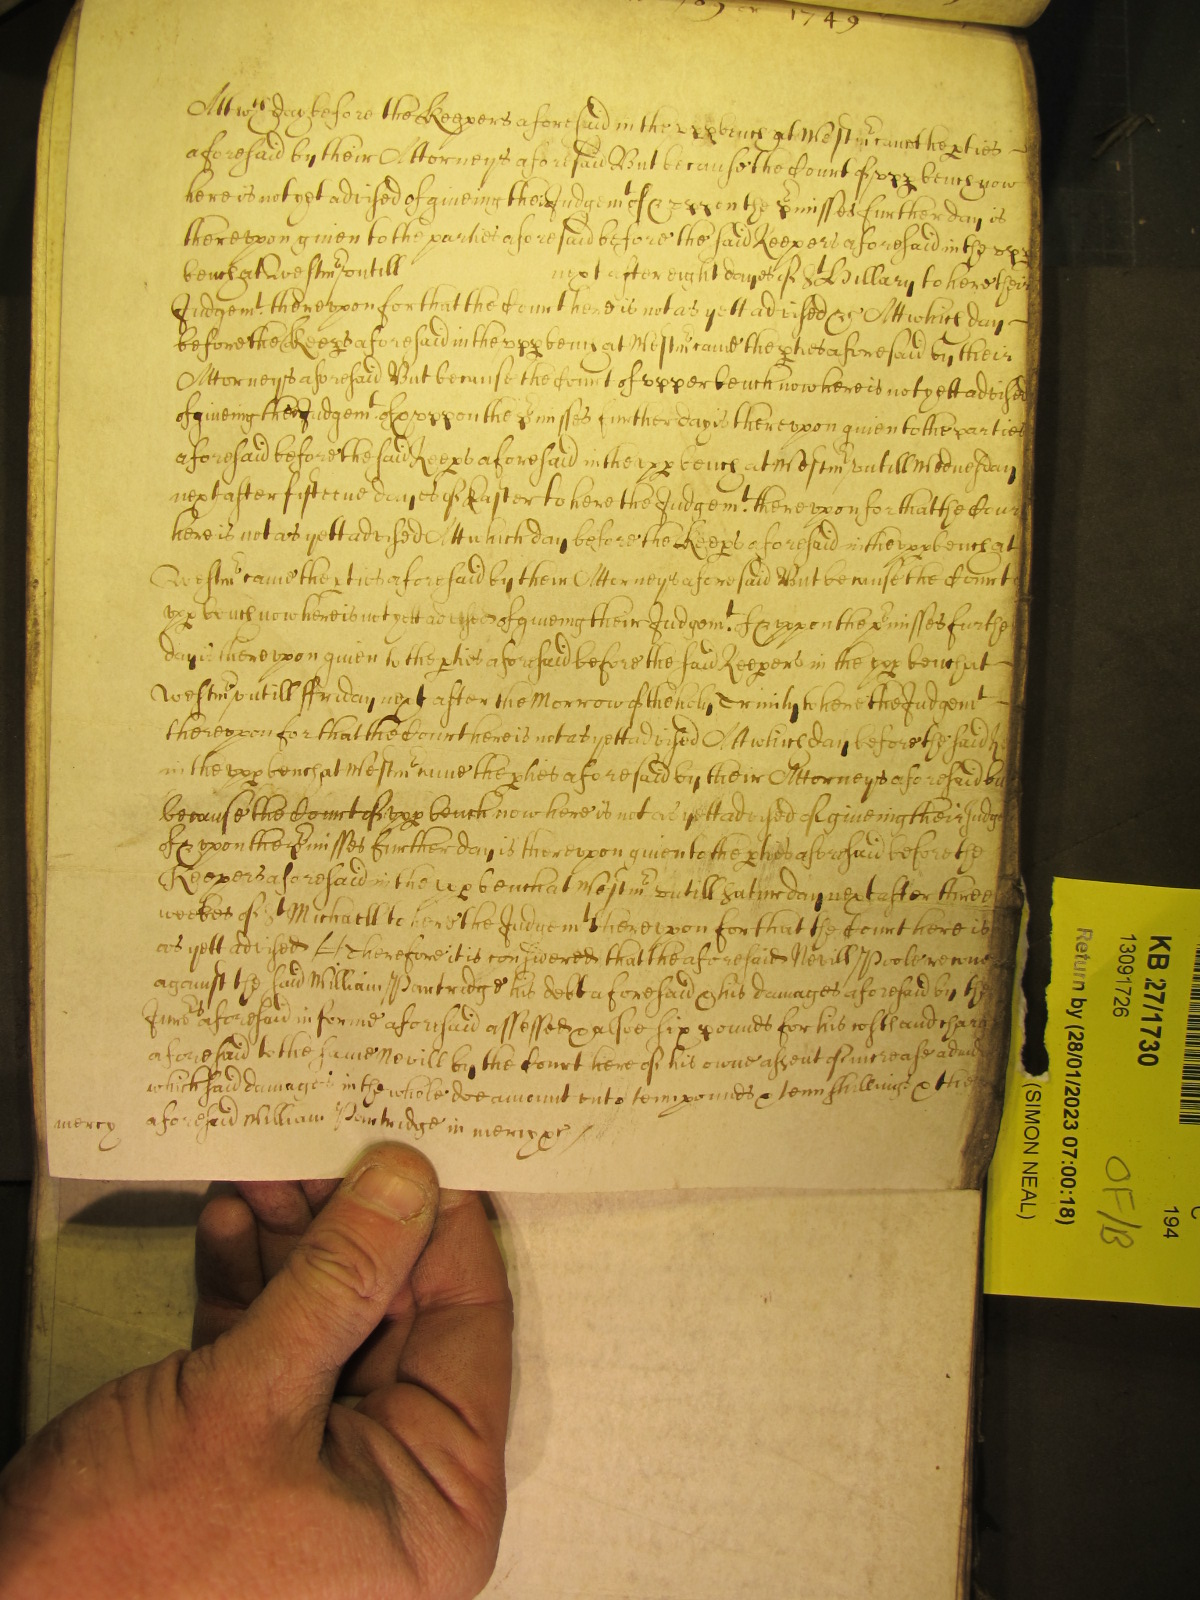 1749
Att wch day before the Keepers aforesaid in the upp bench at Westmr came the pties
aforesaid by their Attorneys aforesaid But because the Court of upp bench now
here is not yet advised of giveing their Judgemt of & upon the pmisses further day is
thereupon given to the parties aforesaid before the said Keepers aforesaid in the upp
bench at Westmr untill next after eight dayes of St Hillary to here their
Judgemt thereupon for that the Court here is not as yett advised &c Att which day
before the Keeps aforesaid in the upp bench at Westmr came the pties aforesaid by their
Attorneys aforesaid But because the Court of upper bench now here is not yett advised
of giveing their Judgemt of & uppon the pmisses further day is thereupon given to the parties
aforesaid before the said Keeps aforesaid in the upp bench at Westmr untill Wednesday
next after fifteene dayes of Easter to here the Judgemt thereupon for that the Cour
here is not as yett advised Att which day before the Keeps aforesaid in the upp bench at
Westmr came the pties aforesaid by their Attorneys aforesaid But because the Court
upp bench now here is not yett advised of giveing their Judgemt of & uppon the pmisses furthe
day is thereupon given to the pties aforesaid before the said Keepers in the upp bench at
Westmr untill ffriday next after the Morrow of the holy Trinity to here the Judgemt
thereupon for that the Court here is not as yett advised Att which day before the said
in the upp bench at Westmr came the pties aforesaid by their Attorneys aforesaid but
because the Court of upp bench now here is not as yett advised of giveing their Judge
of & uppon the pmisses further day is thereupon given to the pties aforesaid before the
Keepers aforesaid in the upp bench at Westmr untill Saturday next after three
weekes of St Michaell to here the Judgemt thereupon for that the Court here is
as yett advised &c Therefore it is considered that the aforesaid Nevill Poole recover
against the said William Partridge his debt aforesaid & his damages aforesaid by the
Jurors aforesaid in forme aforesaid assessed & alsoe six pounds for his costs and charg
aforesaid to the same Nevill by the Court here of his owne assent of increase
which said damages in the whole doe amount unto tenn pounds & tenn shillings & the
mercy aforesaid William Partridge in mercy &c
KB 27/1730
13091726
194
Return by (28/01/2023 07:00:18)
(SIMON NEAL)
OF/B